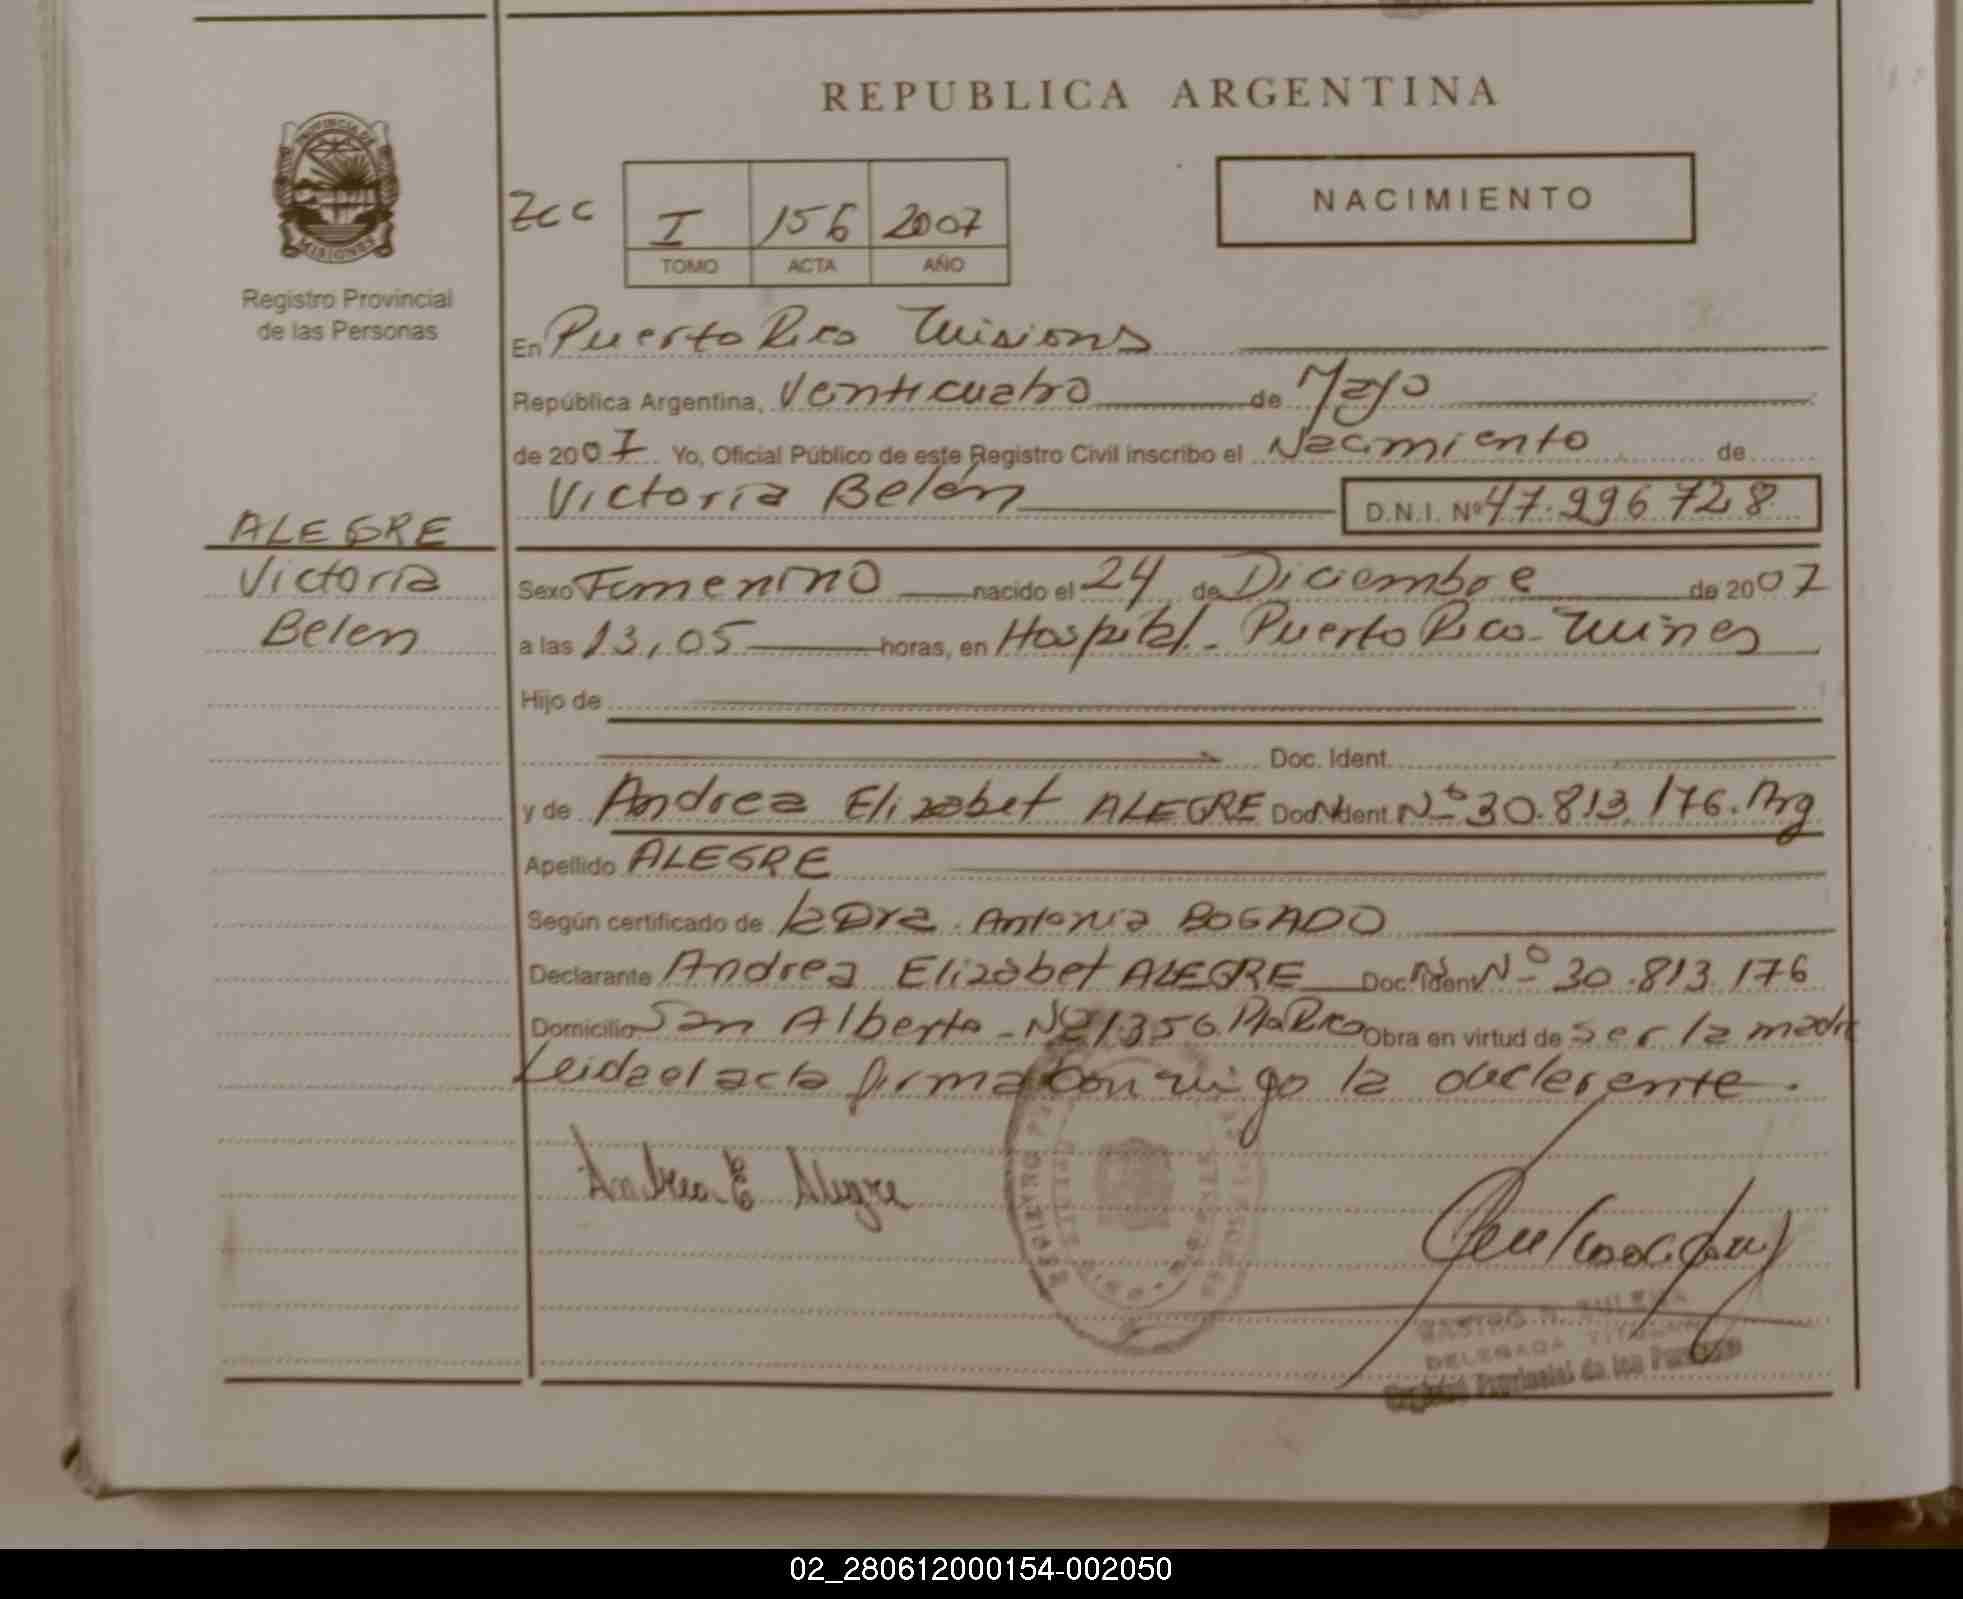 REPUBLICA ARGENTINA
PROVINCIA DE
MISIONES
Registro Provincial
de las Personas
NACIMIENTO
Zcc
I 156 2007
TOMO ACTA AÑO
En Puerto Rico Misiones
República Argentina, Venticuatro de Mayo
de 2007 Yo, Oficial Público de este Registro Civil inscribo el Nacimiento de
Victoria Belén D.N.I. Nº 47.996728
ALEGRE
Victoria
Belen
Sexo Femenino nacido el 24 de Diciembre de 2007
a las 13,05 horas, en Hospital - Puerto Rico - Mnes
Hijo de
Doc. Ident.
y de Andrea Elizabet ALEGRE Doc. Ident. Nº 30.813.176. Arg
Apellido ALEGRE
Según certificado de la Dra. Antonia BOGADO
Declarante Andrea Elizabet ALEGRE Doc. Ident Nº 30.813.176
Domicilio San Alberto - Nº 1356 Pto Rico Obra en virtud de ser la madre
Leida el acta firma con migo la declarante.
Andrea E Alegre
DELEGADA TITULAR
Registro Provincial de las Personas
02_280612000154-002050